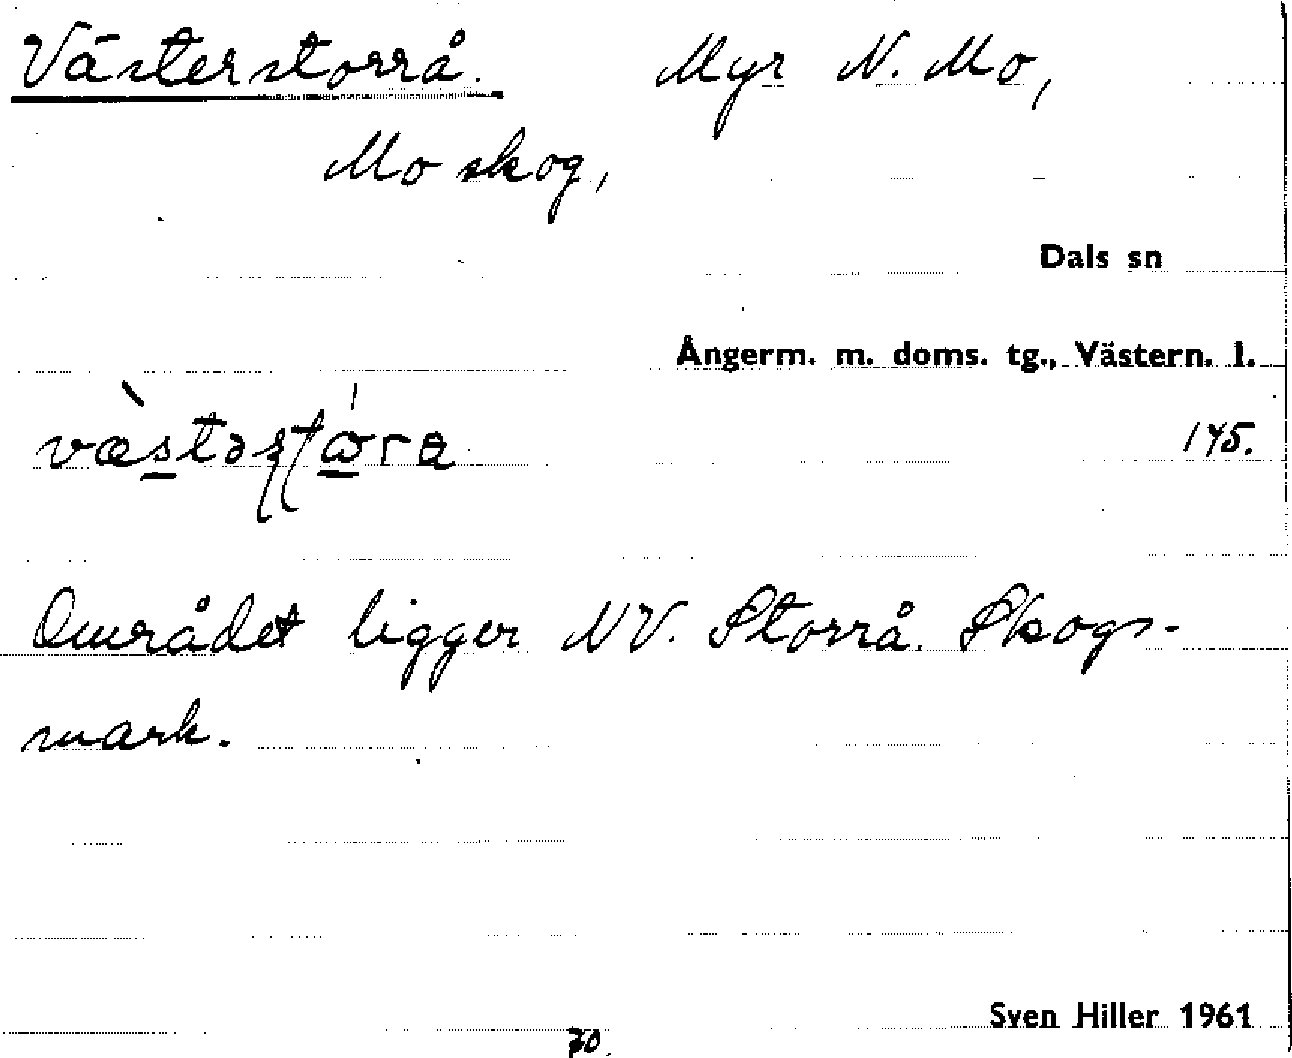 Västerstorrå. Myr N. Mo,
Mo skog,
Dals sn
Ångerm. m. doms. tg., Västern. l.
145.
Området ligger NV. Storrå. Skogs-
mark.
Sven Hiller 1961
70.